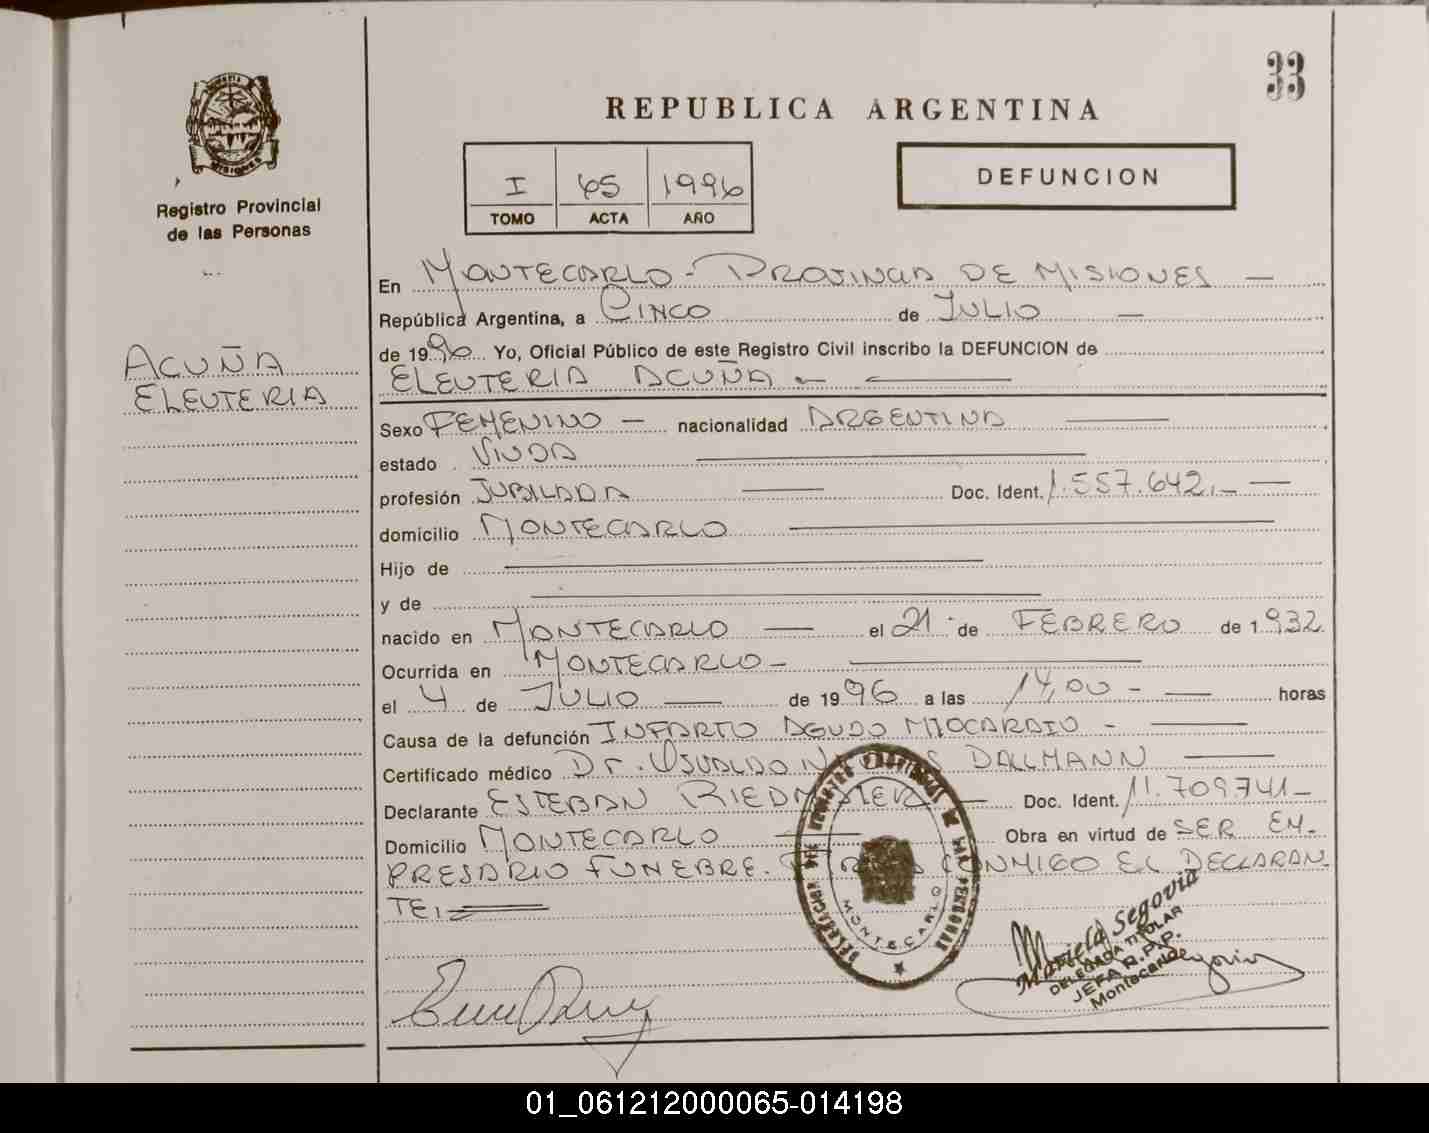 33
REPUBLICA ARGENTINA
MISIONES
Registro Provincial
de las Personas
I 65 1996
TOMO ACTA AÑO
DEFUNCION
ACUÑA
ELEUTERIA
En MONTECARLO - PROVINCIA DE MISIONES —
República Argentina, a CINCO de JULIO —
de 1996 Yo, Oficial Público de este Registro Civil inscribo la DEFUNCION de
ELEUTERIA ACUÑA — —
Sexo FEMENINO — nacionalidad ARGENTINA —
estado VIUDA —
profesión JUBILADA — Doc. Ident. 1.557.642.- —
domicilio MONTECARLO —
Hijo de —
y de —
nacido en MONTECARLO — el 21 de FEBRERO de 1932
Ocurrida en MONTECARLO - —
el 4 de JULIO — de 1996 a las 14,00 - — horas
Causa de la defunción INFARTO AGUDO MIOCARDIO - —
Certificado médico Dr. OSVALDO DALLMANN —
Declarante ESTEBAN RIEDMAIER — Doc. Ident. 11.709741-
Domicilio MONTECARLO — Obra en virtud de SER EM-
PRESARIO FUNEBRE. CONMIGO EL DECLARAN-
TE;
DELEGACION DEL REGISTRO PROVINCIAL DE LAS PERSONAS
MONTECARLO
Mariela Segovia
DELEGADA TITULAR
JEFA R.P.P.
Montecarlo
01_061212000065-014198